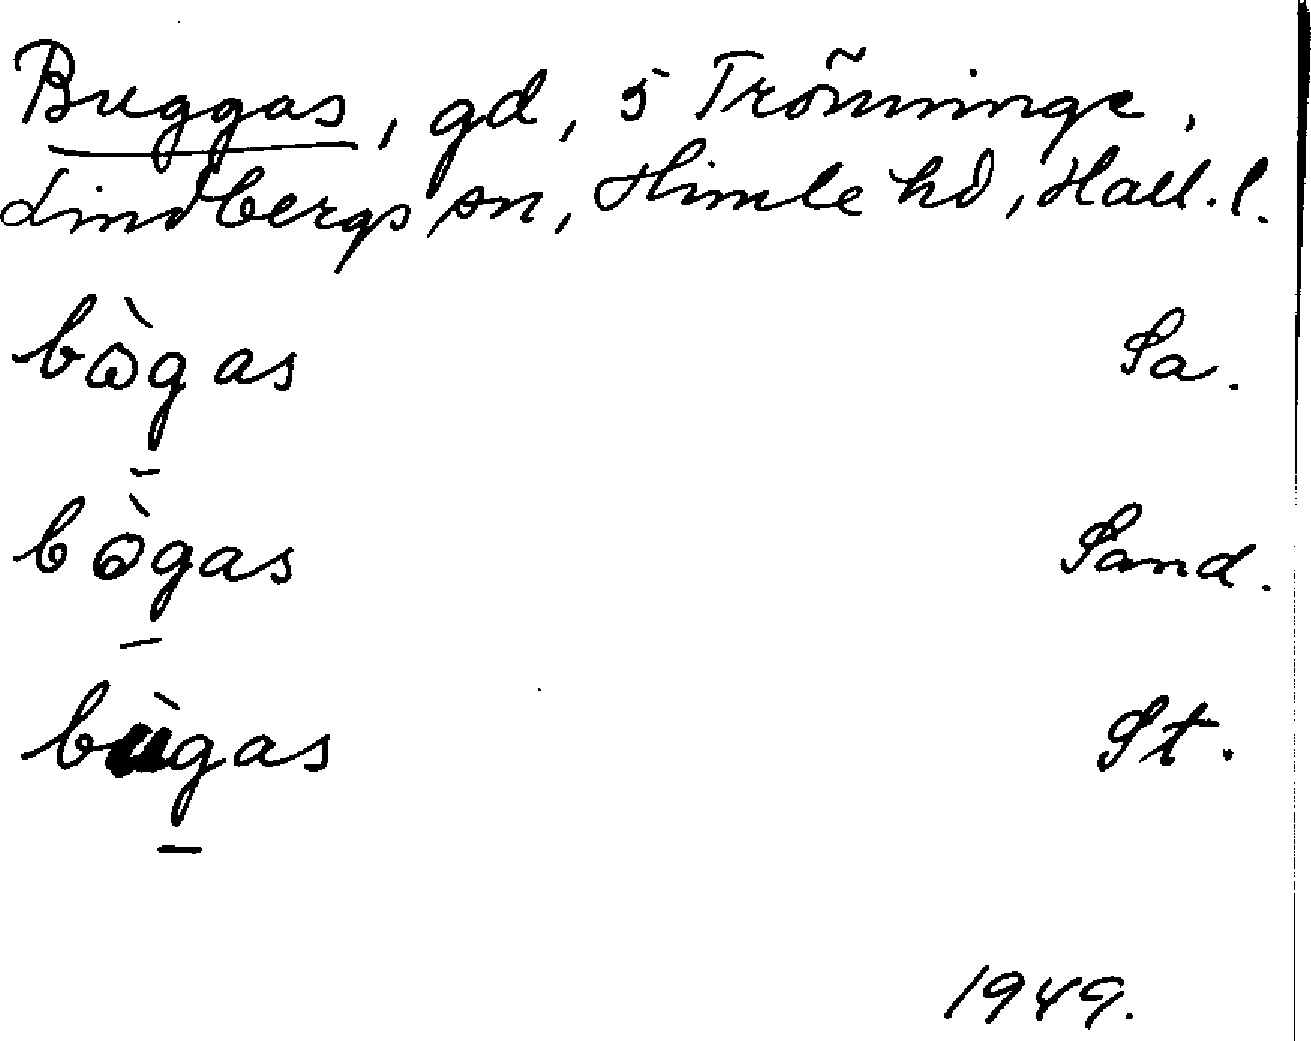 Buggas, gd, 5 Trönninge,
Lindbergs sn, Himle hd, Hall. l.
bὼgas Sa.
bògas Sand.
bùgas St.
1949.